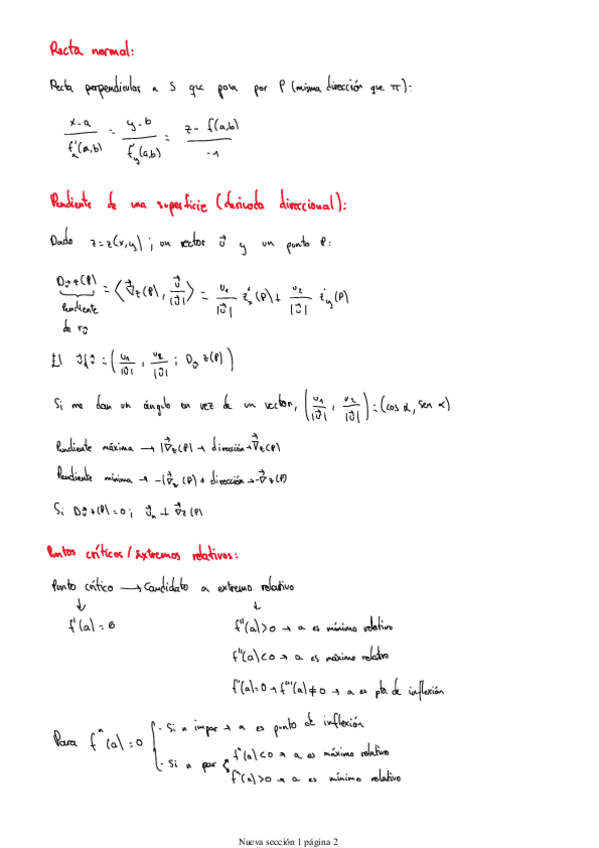 Recta normal:
Recta perpendicular a S que pasa por P (misma dirección que π):
x-a / f'x(a,b) = y-b / f'y(a,b) = z - f(a,b) / -1
Pendiente de una superficie (derivada direccional):
Dado z=z(x,y) ; un vector v⃗ y un punto P:
Dv⃗ z(P) = ⟨∇⃗z(P), v⃗/|v⃗|⟩ = v₁/|v⃗| z'x(P) + v₂/|v⃗| z'y(P)
Pendiente
de
= (v₁/|v⃗| , v₂/|v⃗| ; Dv⃗ z(P))
Si me dan un ángulo en vez de un vector, (v₁/|v⃗| , v₂/|v⃗|) = (cos α, sen α)
Pendiente máxima → |∇⃗z(P)| → dirección → ∇⃗z(P)
Pendiente mínima → -|∇⃗z(P)| → dirección → -∇⃗z(P)
Si Dv⃗ z(P)=0; ⊥ ∇⃗z(P)
Puntos críticos / Extremos relativos:
Punto crítico → Candidato a extremo relativo
↓ ↓
f'(a) = 0 f''(a)>0 → a es mínimo relativo
f''(a)<0 → a es máximo relativo
f''(a)=0 → f'''(a)≠0 → a es pto. de inflexión
Para fⁿ(a)=0 { · Si n impar → a es punto de inflexión
· Si n par { fⁿ(a)<0 → a es máximo relativo
fⁿ(a)>0 → a es mínimo relativo
Nueva sección 1 página 2